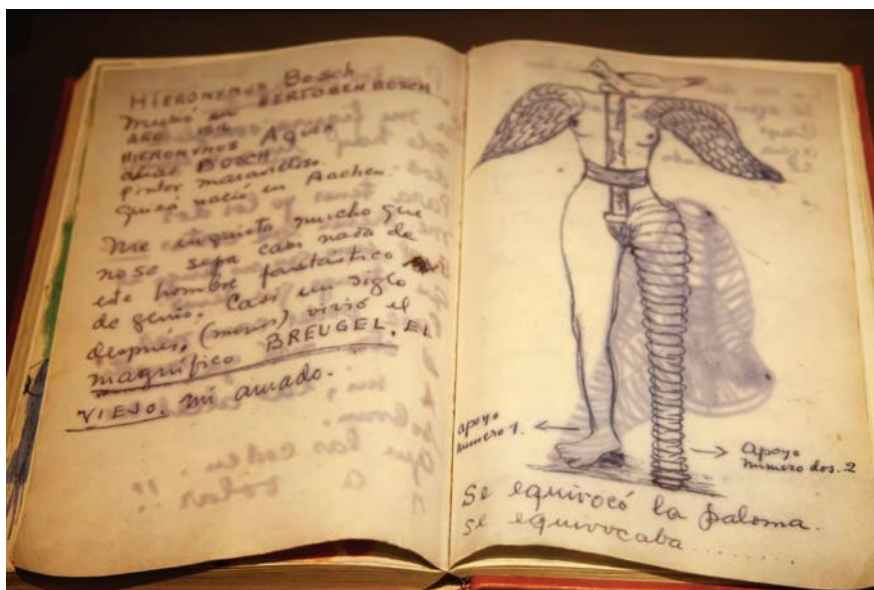 HIERONYMUS Bosch
murió en HERTOGENBOSCH
AÑO 1516
HIERONYMUS Aquen
alias BOSCH.
pintor maravilloso.
quizá nació en Aachen.
Me inquieta mucho que
no se sepa casi nada de
este hombre fantástico
de genio. Casi un siglo
después, (menos) vivió el
magnífico BREUGEL, EL
VIEJO. mi amado.
apoyo
numero 1.
Apoyo
número dos. 2
Se equivocó la paloma.
se equivocaba........